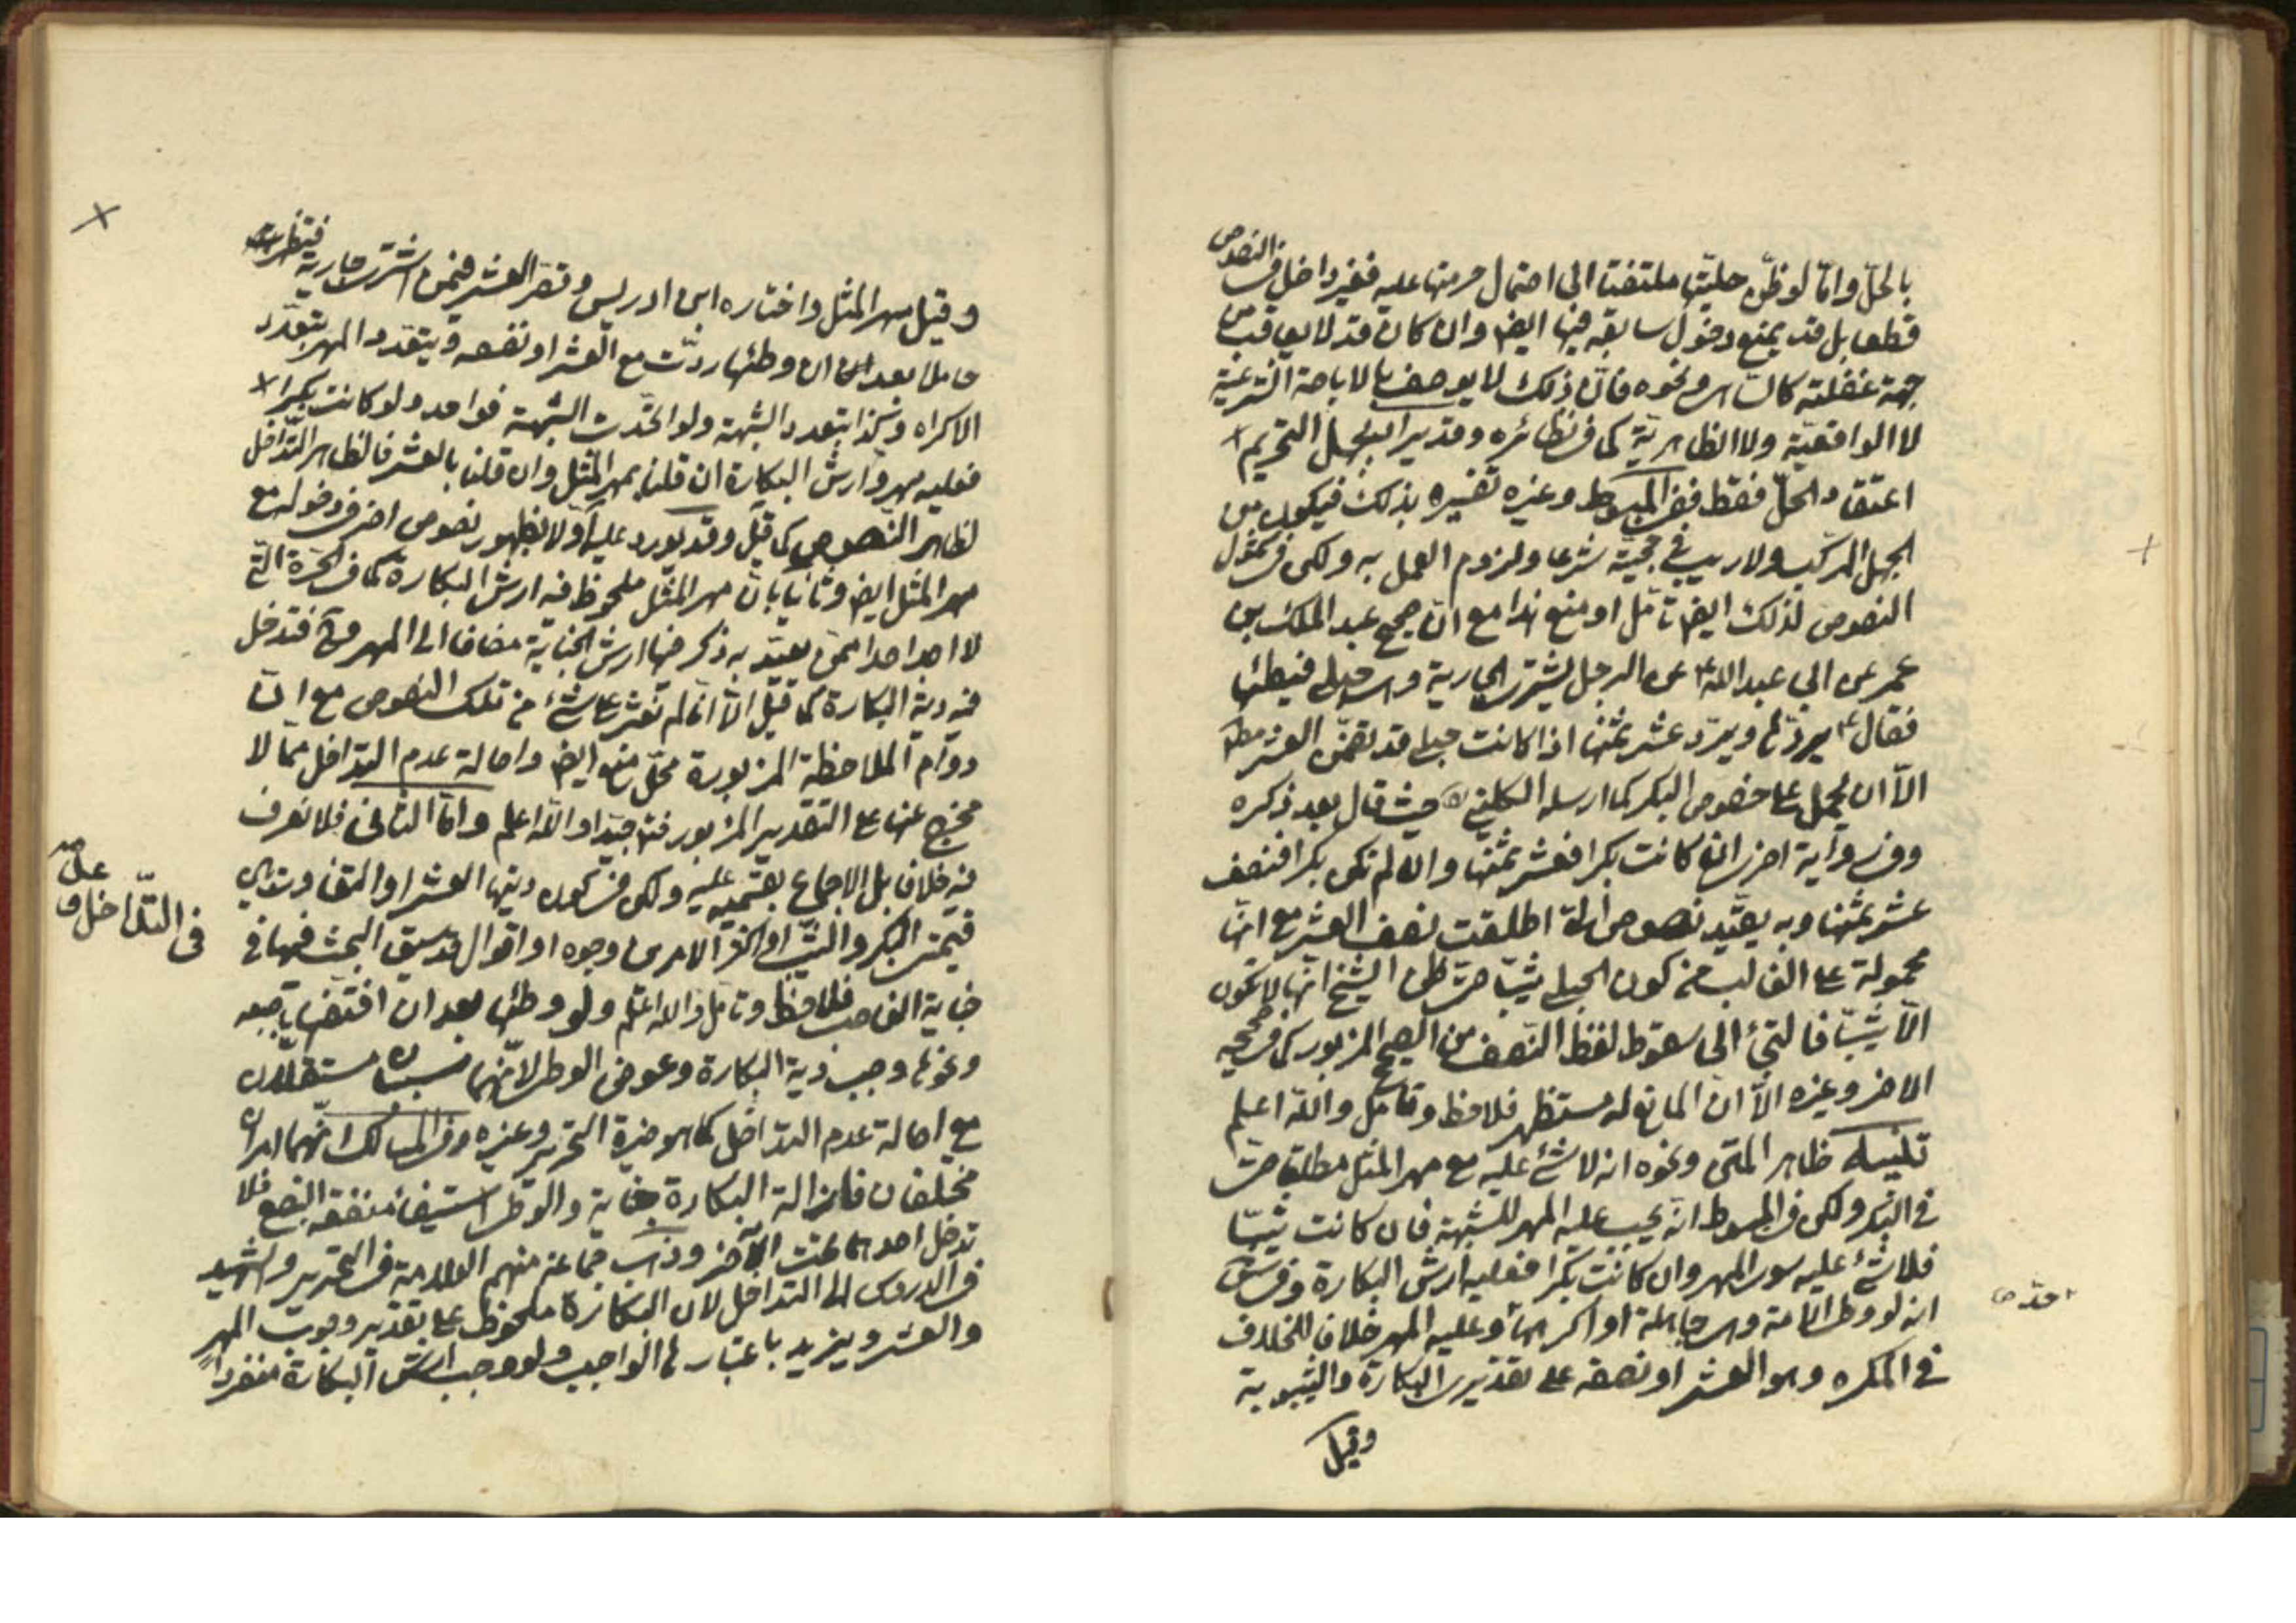 بالحلّ وامّا لو ظنّ حليّتها ملتفتا الى احتمال حرمتها عليه فغير داخل في النصوص
قطعا بل قد يمنع دخول سابقه فيها ايض وان كان قد لا يعاقب من
جهة غفلته كالناسى ونحوه فانّ ذلك لا يوصف بالاباحة الشرعية
لا الواقعيّة ولا الظاهريّة كما في نظائره وقد يراد بجهل التحريم
اعتقاد الحلّ فقط ففي المبسوط وغيره تفسيره بذلك فيكون من
الجهل المركّب ولا ريب في حجيّته شرعا ولزوم العمل به ولكن في شمول
النصوص لذلك ايض تأمّل او منع هذا مع انّ صحيح عبد الملك بن
عمر عن ابي عبد الله ع عن الرجل يشترى الجارية وهى حبلى فيطئها
فقال ع يردّها ويردّ عشر ثمنها اذا كانت حبلى قد تضمّن العشر مطلقا
الّا ان يحمل على خصوص البكر كما ارسله الكليني حيث قال بعد ذكره
وفي رواية اخرى ان كانت بكرا فعشر ثمنها وان لم تكن بكرا فنصف
عشر ثمنها وبه يقيّد نصوص اطلقت نصف العشر مع انّها
محمولة على الغالب من كون الحبلى ثيّبا حتى ظن الشيخ انّها لا تكون
الّا ثيّبا فالتجئ الى سقوط لفظ النّصف من الصحيح المزبور كما في صحيحه
الاخر وغيره الّا انّ المانع له مستظهر فلاحظ وتأمّل والله اعلم
تنبيه ظاهر المتن ونحوه انه لا شئ عليه مع مهر المثل مطلقا حتى
في البكر ولكن في المبسوط انّه يجب عليه المهر للشبهة فان كانت ثيّبا
فلا شئ عليه سوى المهر وان كانت بكرا فعليه ارش البكارة وفي
انه لو وطى الامة وهى جاهلة او اكرهها وعليه المهر خلافا للخلاف
في المكره وهو العشر او نصفه على تقديرى البكارة والثيبوبة
وقيل
وقيل مهر المثل واختاره ابن ادريس وقصر العشر فيمن اشترى جارية فتظهرت
حاملا بعد ان وطئها ردّت مع العشر او نصفه ويتعدد المهر بتعدّد
الاكراه وكذا بتعدد الشبهة ولو اتّحدت الشبهة فواحد ولو كانت بكرا
فعليه مهر وارش البكارة ان قلنا بمهر المثل وان قلنا بالعشر فالظاهر التّداخل
لظاهر النّصوص كما قيل وقد يورد عليه اولا بظهور نصوص اخر في دخوله مع
مهر المثل ايض وثانيا بانّ مهر المثل ملحوظ فيه ارش البكارة كما في الحرّة التي
لا اجد احدا ممّن يعتدّ به ذكر فيها ارش الجناية مضافا الى المهر فتدخل
فيه دية البكارة كما قيل الّا انّا لم نعثر على شئ من تلك النصوص مع انّ
دوام الملاحظة المزبورة محلّ منع ايض واصالة عدم التداخل ممّا لا
مخرج عنها على التقدير المزبور فتأ جيّدا والله اعلم وامّا الثاني فلا نعرف
فيه خلافا بل الاجماع بقسميه عليه ولكن في كون ديتها العشر او التفاوت
قيمتى البكر والثيّب او اكثر الامرين وجوه او اقوال قد سبق البحث فيها في
جناية الغاصب فلاحظ وتأمّل والله اعلم ولو وطئها بعد ان افتضّها باصبعه
ونحوها وجب دية البكارة وعوض الوطى لانّهما سببان مستقلّان
مع اصالة عدم التداخل كما هو خيرة التحرير وغيره وفي المسالك انّهما امران
مختلفان فازالة البكارة جناية والوطى استيفاء منفعة البضع فلا
تدخل احدهما تحت الاخر وذهب جماعة منهم العلامة في التحرير والشهيد
في الدروس الى التداخل لان البكارة ملحوظة على تقدير وجوب المهر
والعشر ويزيد باعتبارها الواجب ولو وجب ارش البكارة منفردا
في التّداخل و